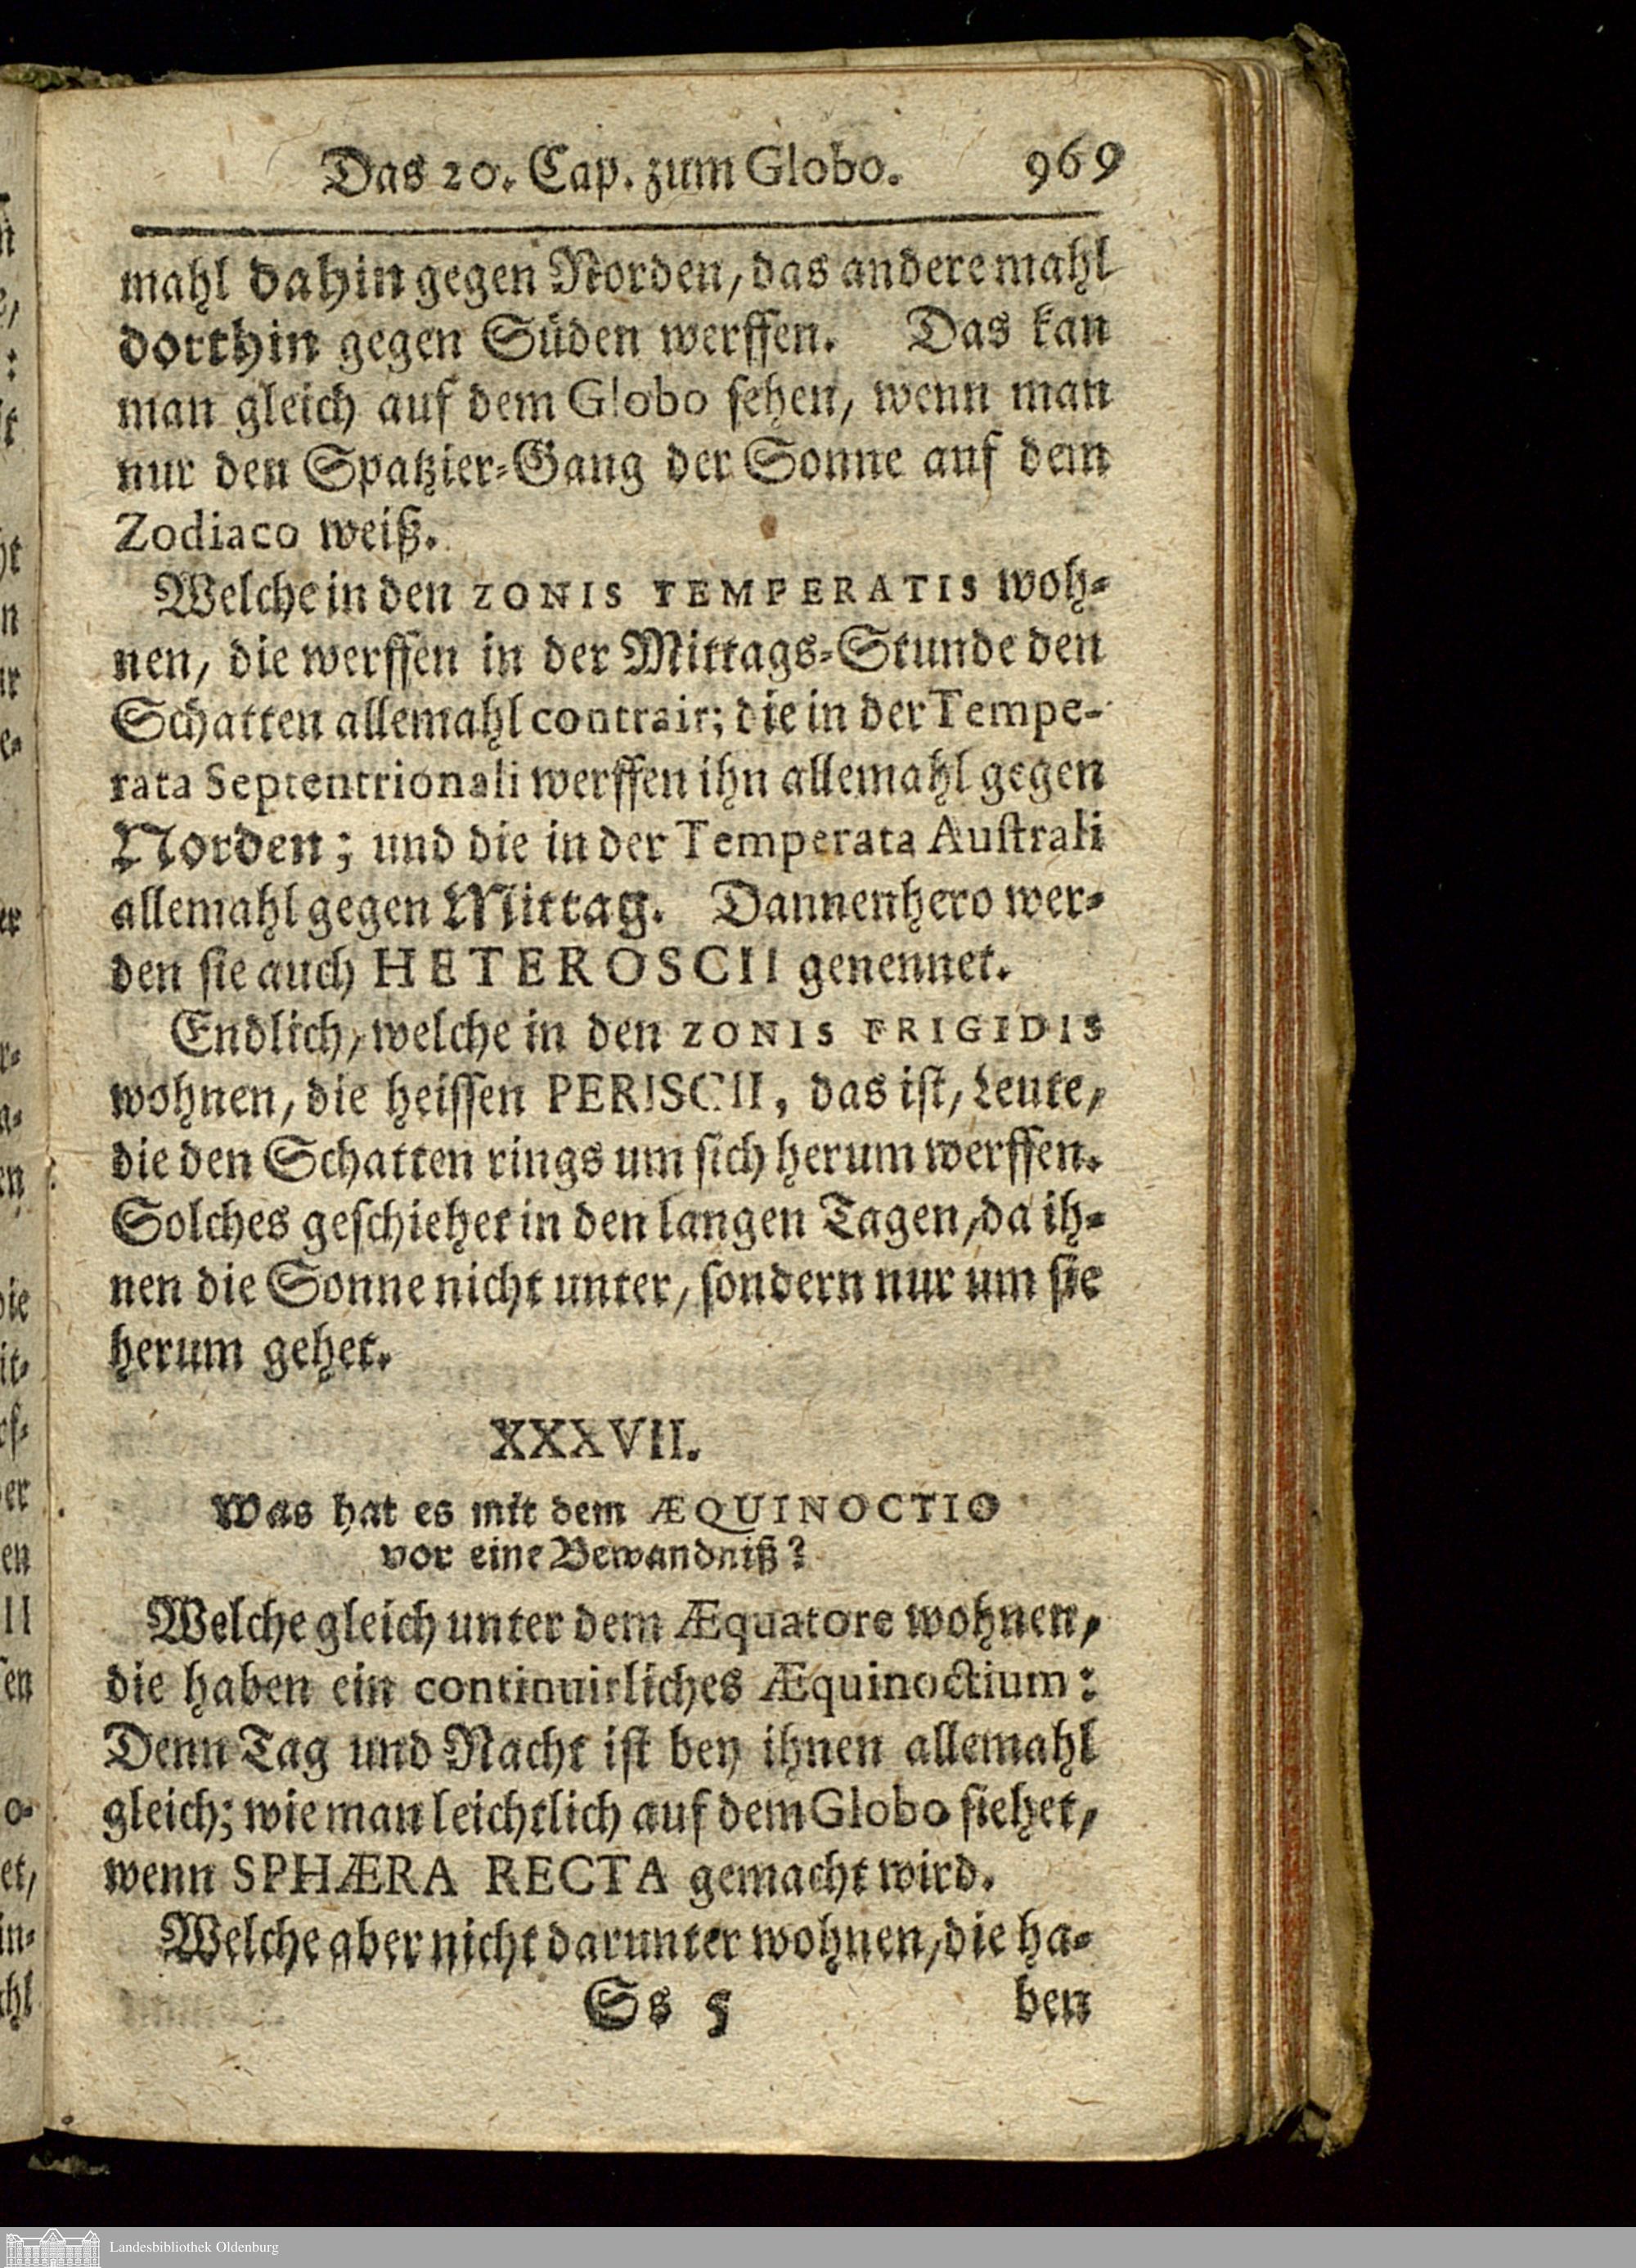 Das 20. Cap. zum Globo. 969
mahl dahin gegen Norden, das andere mahl
dorthin gegen Süden werffen. Das kan
man gleich auf dem Globo sehen, wenn man
nur den Spatzier-Gang der Sonne auf dem
Zodiaco weiß.
Welche in den ZONIS TEMPERATIS woh-
nen, die werffen in der Mittags-Stunde den
Schatten allemahl contrair; die in der Tempe-
rata Septentrionali werffen ihn allemahl gegen
Norden; und die in der Temperata Australi
allemahl gegen Mittag. Dannenhero wer-
den sie auch HETEROSCII genennet.
Endlich, welche in den ZONIS FRIGIDIS
wohnen, die heissen PERISCII, das ist, Leute,
die den Schatten rings um sich herum werffen.
Solches geschiehet in den langen Tagen, da ih-
nen die Sonne nicht unter, sondern nur um sie
herum gehet.
XXXVII.
Was hat es mit dem ÆQUINOCTIO
vor eine Bewandniß?
Welche gleich unter dem Æquatore wohnen,
die haben ein continuirliches Æquinoctium:
Denn Tag und Nacht ist bey ihnen allemahl
gleich; wie man leichtlich auf dem Globo siehet,
wenn SPHÆRA RECTA gemacht wird.
Welche aber nicht darunter wohnen, die ha-
Ss 5 ben
Landesbibliothek Oldenburg